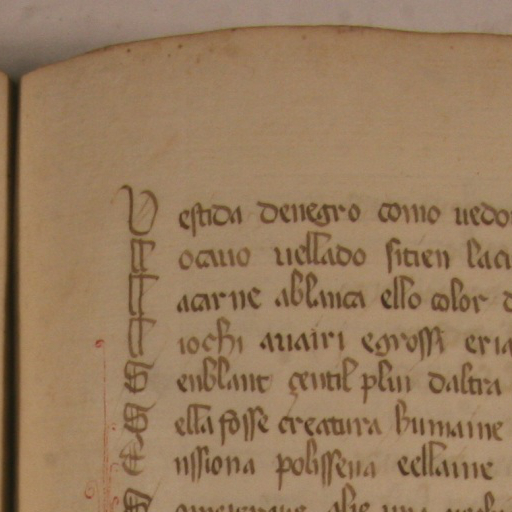 V estida denegro como uedo
T ocauo uellado sitien laci
T acarne ablanca ello color d
T iochi auairi egrossi eria
S enblant gentil plui daltra
S ella fosse creatura humaine
E nssiona polissena eellaine
S